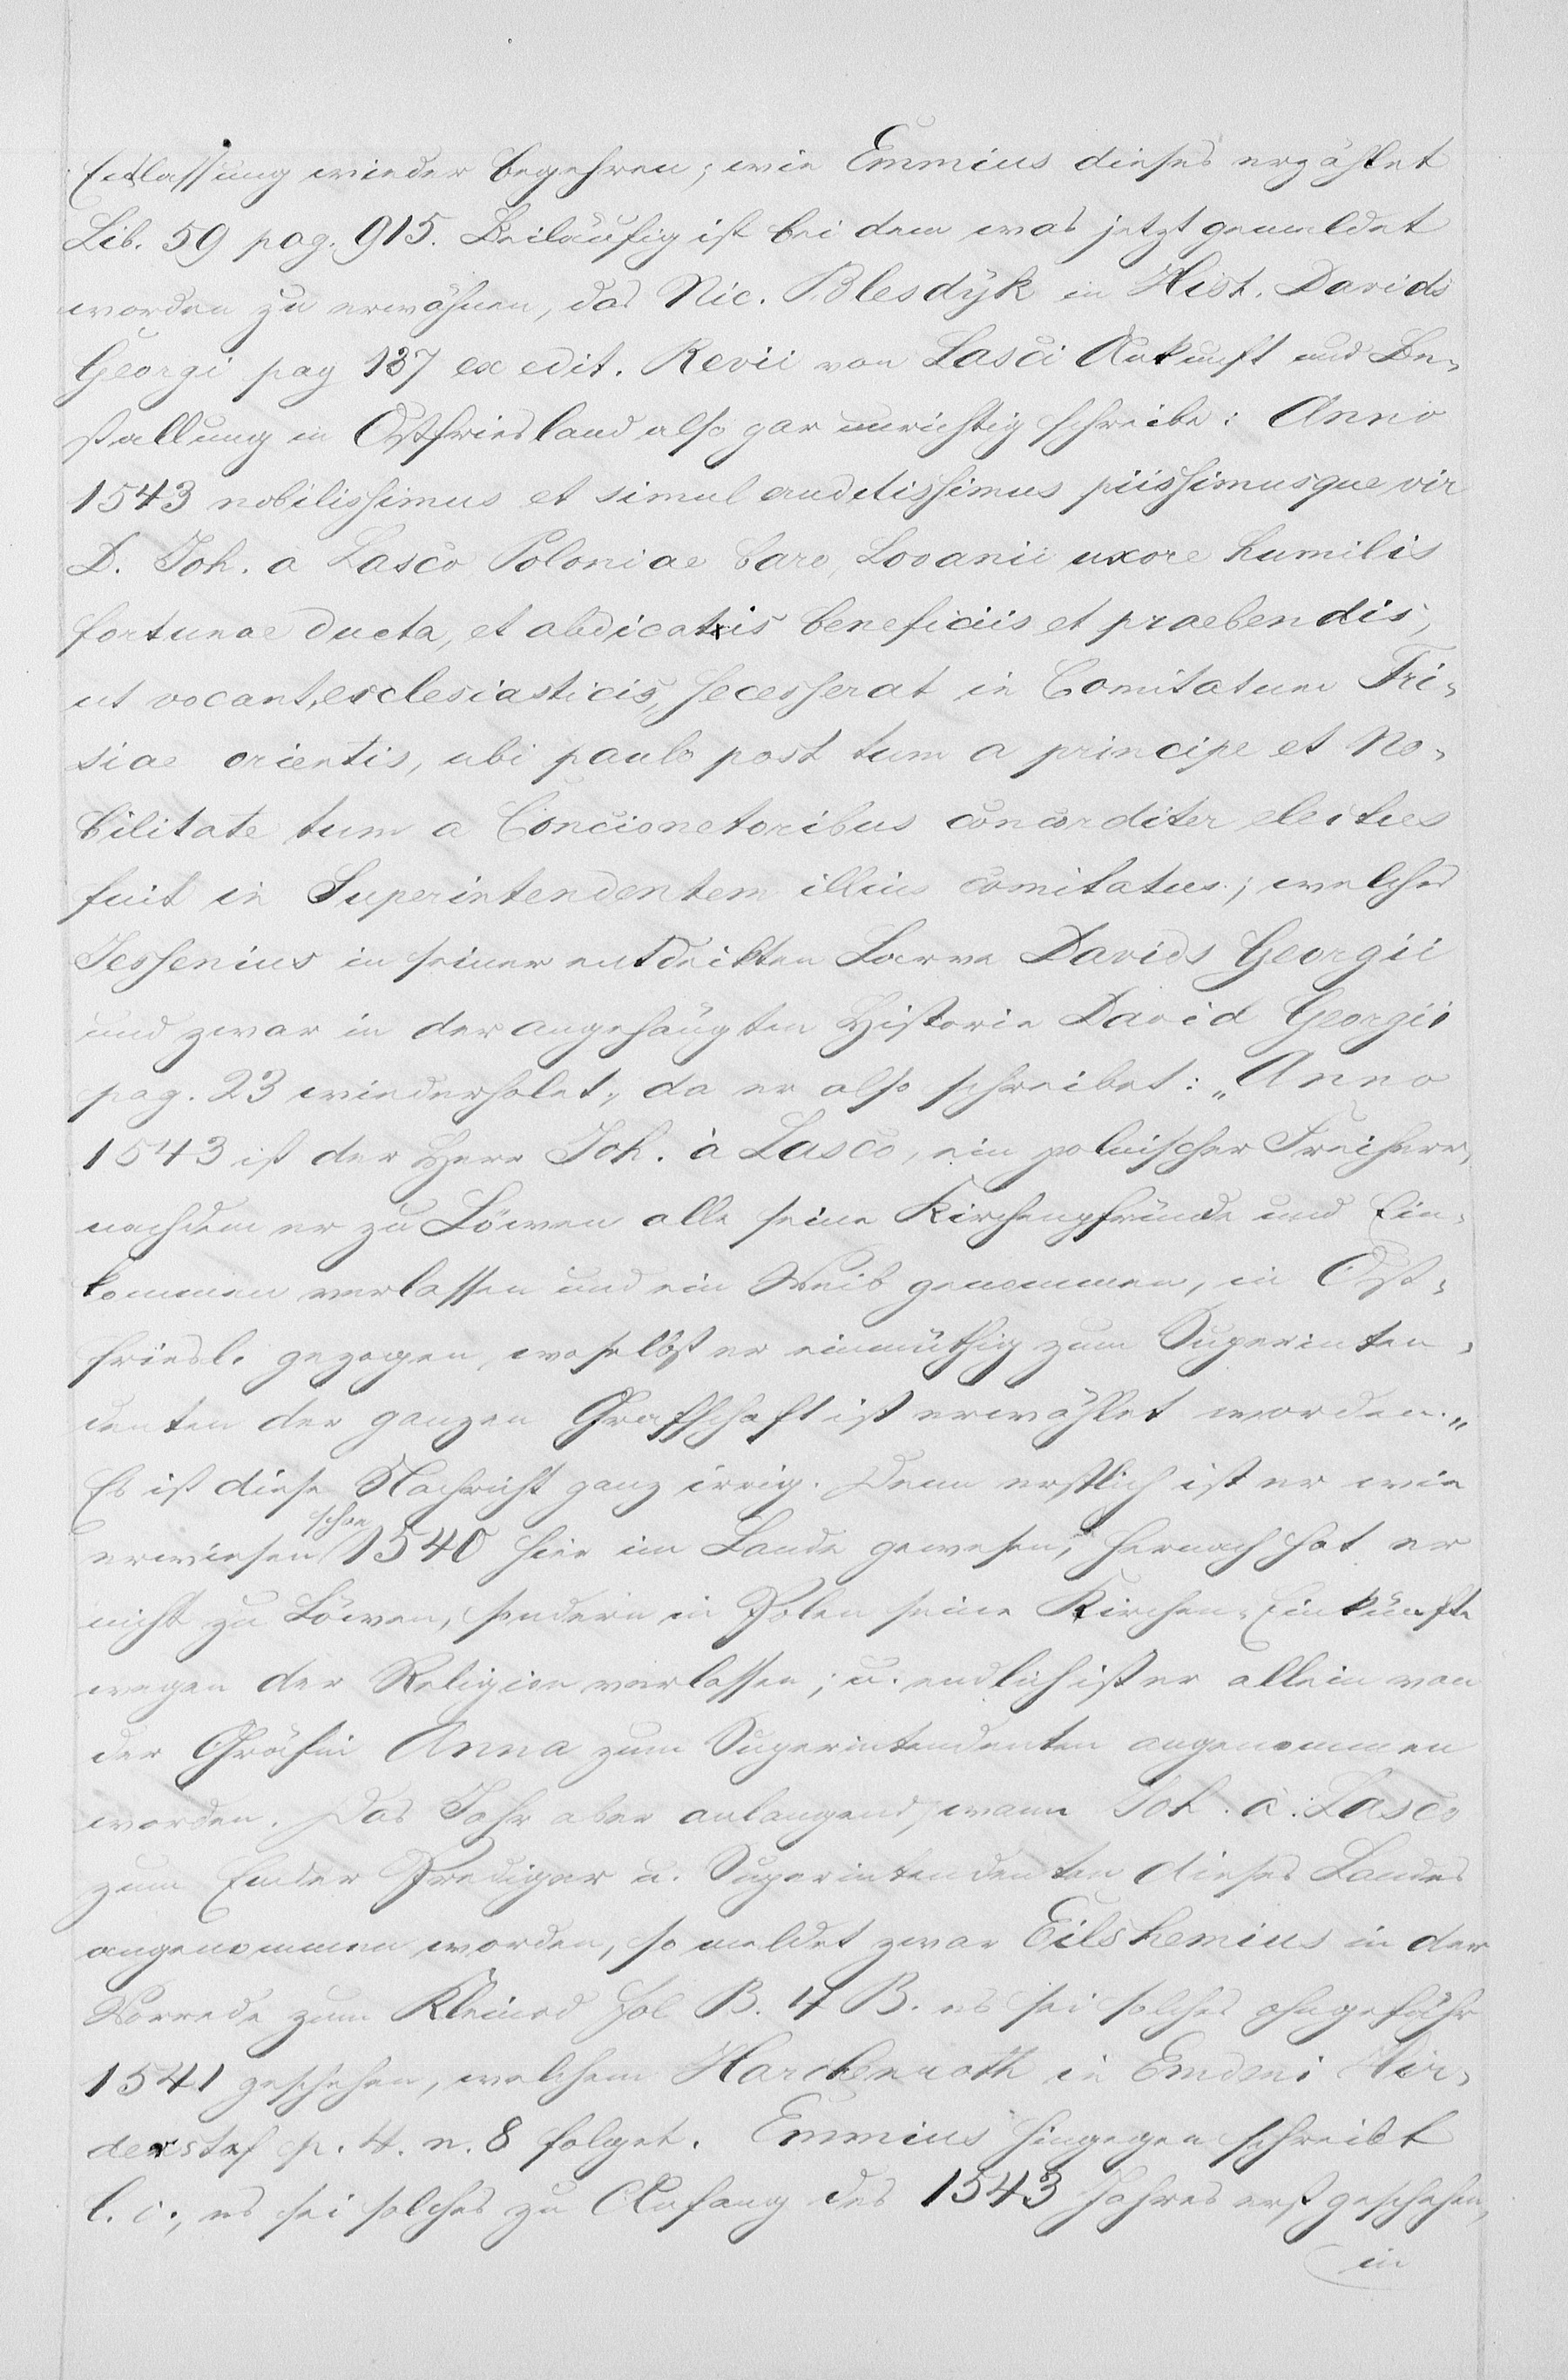 Entlassung wieder begehren; wie Emmius dieses erzählet
Lib. 59 pag. 915. Beiläufig ist bei dem was jetzt gemeldet
worden zu erwähnen, das Nic. Blesdÿk in Hist. Davids
Georgi pag 137 ex edit. Revii von Lasci Ankunft und Be-
stallung in Ostfriesland also gar unrichtig schreibe: Anno
1543 nobilissimus et simul eruditissimus piissimusque vir
D. Joh. a Lasco Poloniae baro, Lovanii uxore humilis
fortunae ducta, et abdicatis beneficiis et praebendis,
ut vocant, ecclesiasticis, secesserat in Comitatum Fri-
siae orientis, ubi paulo post tum a principe et No-
bilitate tum a Concionetoribus concorditer electus
fuit in Superintendentem illius comitatus; welches
Jessenius in seiner entdeckten Larve Davids Georgii
und zwar in der angehängten Historie David Georgii
pag. 23 wiederholet, da er also schreibet: „Anno
1543 ist der Herr Joh. à Lasco, ein polnischer Freiherr,
nachdem er zu Löwen alle seine Kirchenpfründe und Ein-
kommen verlassen und ein Weib genommen, in Ost-
friesl. gezogen, woselbst er einmüthig zum Superinten-
denten der ganzen Graffschaft ist erwählet worden.„
Es ist diese Nachricht ganz irrig. Denn erstlich ist er wie
erwiesen schon 1540 hier im Lande gewesen, hernach hat er
nicht zu Löwen, sondern in Polen seine Kirchen-Einkünfte
wegen der Religion verlassen; u. endlich ist er allein von
der Gräfin Anna zum Superintendenten angenommen
worden. Das Jahr aber anlangend, wann Joh. à. Lasco
zum Emder Prediger u. Superintendenten dieses Landes
angenommen worden, so meldet zwar Eilshemius in der
Vorrede zum Kleinod fol B. 4 B. es sei solches ohngefähr
1541 geschehen, welchem Harckenroth in Emdens Hir-
derstaf p. 4. n. 8 folget. Emmius hingegen schreibt
l. c., es sei solches zu Anfang des 1543 Jahres erst geschehen,
in